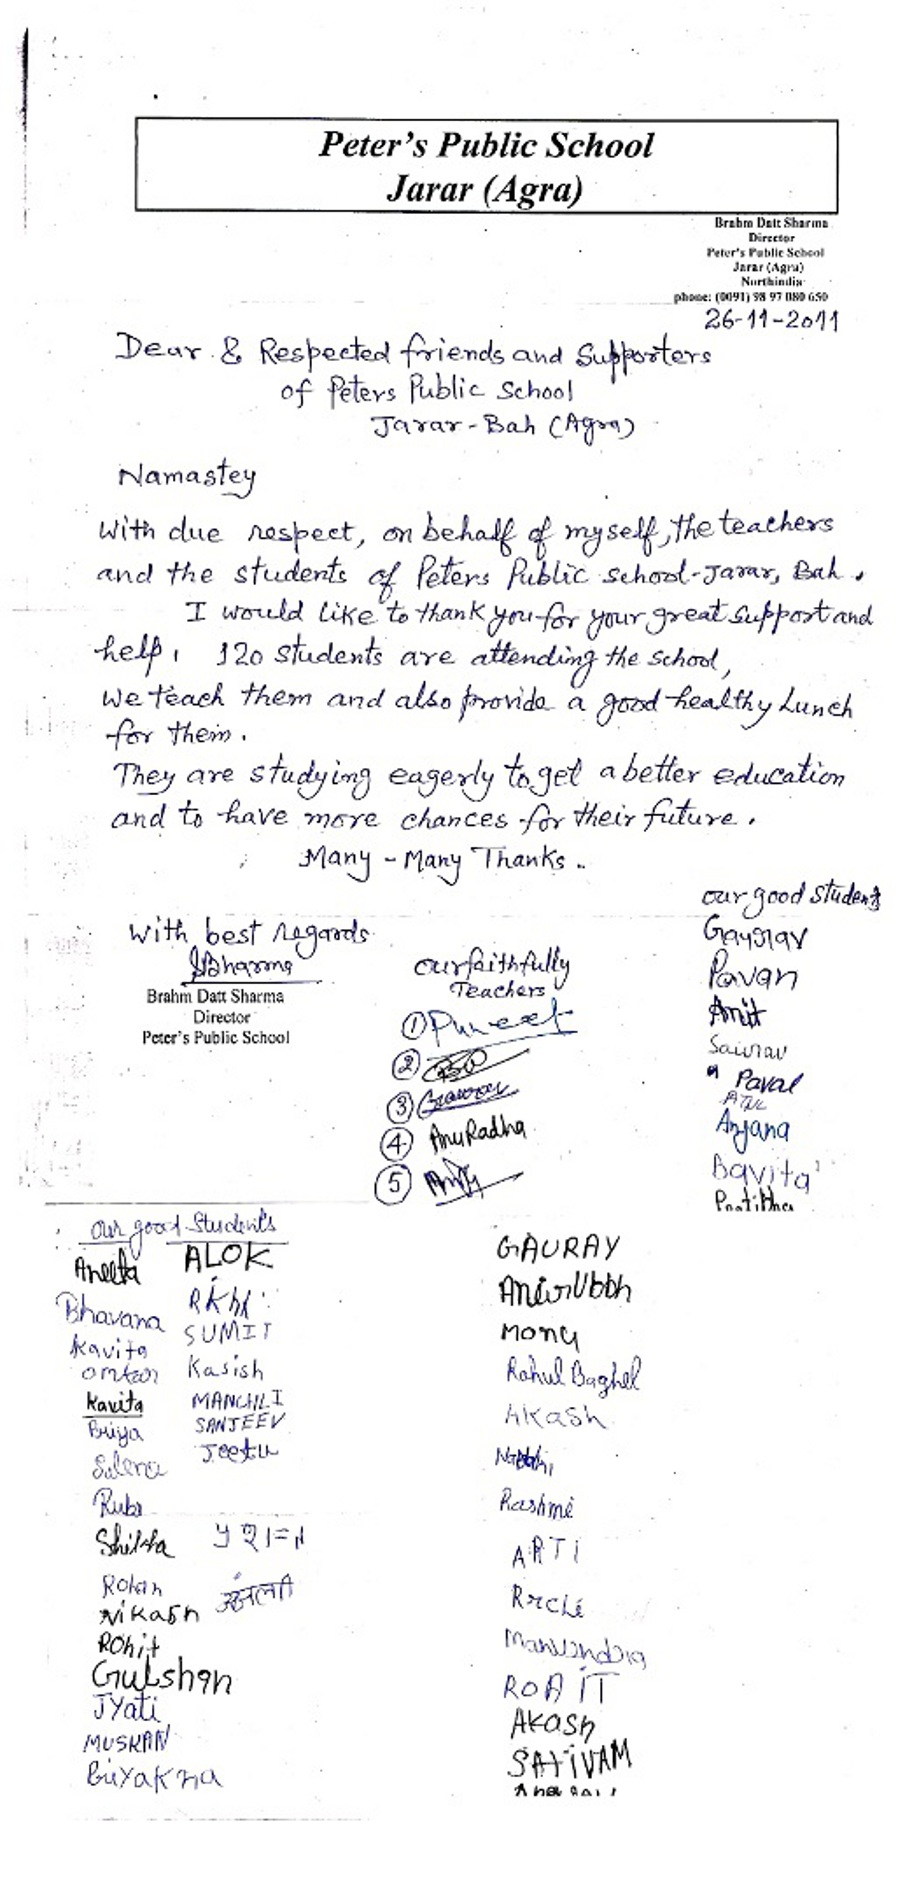 Peter's Public School
Jarar (Agra)
Brahm Datt Sharma
Director
Peter's Public School
Jarar (Agra)
Northindia
phone: (0091) 98 97 080 650
26-11-2011
Dear & Respected friends and Supporters
of Peters Public School
Jarar-Bah (Agra)
Namastey
With due respect, on behalf of myself, the teachers
and the students of Peters Public school-Jarar, Bah.
I would like to thank you for your great support and
help, 120 students are attending the school,
we teach them and also provide a good healthy Lunch
for them.
They are studying eagerly to get a better education
and to have more chances for their future.
Many - Many Thanks..
With best regards
Brahm Datt Sharma
Director
Peter's Public School
our faithfully
Teachers
① Puneet
②
③
④ AnuRadha
⑤
our good Students
Gaurav
Pavan
Amit
Saurav
Paval
ATUL
Anjana
Bavita
our good Students
Aneeta
Bhavana
Kavita
omkar
Kavita
Briya
Salena
Rubi
Shilkha
Rohan
Nikash
ROhit
Gulshan
JYati
MUSKAN
BiYaKna
ALOK
RKhI
SUMIT
Kasish
MANCHLI
SANJEEV
Jeetu
अंजली
GAURAY
Anirubbh
Monu
Rahul Baghel
AKash
Rashmi
ARTi
ROAIT
AKash
SATIVAM